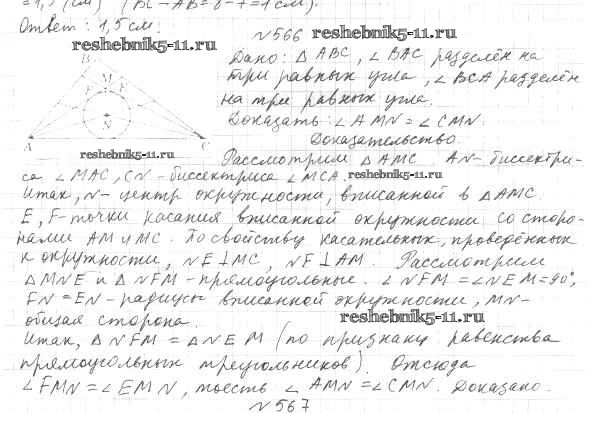 = 1,5 (см) (BC - AB = 8 - 7 = 1 см).
Ответ: 1,5 см.
reshebnik5-11.ru
№566
reshebnik5-11.ru
Дано: △ ABC, ∠ BAC разделён на
три равных угла, ∠ BCA разделён
на три равных угла.
Доказать: ∠ AMN = ∠ CMN.
Доказательство.
B
M
F
E
N
A
C
reshebnik5-11.ru
Рассмотрим △ AMC. AN - биссектри-
са ∠ MAC, CN - биссектриса ∠ MCA.
reshebnik5-11.ru
Итак, N - центр окружности, вписанной в △ AMC.
E, F - точки касания вписанной окружности со сторо-
нами AM и MC. По свойству касательных, проведённых
к окружности, NE ⊥ MC, NF ⊥ AM. Рассмотрим
△ MNE и △ NFM - прямоугольные. ∠ NFM = ∠ NEM = 90°,
FN = EN - радиусы вписанной окружности, MN -
общая сторона.
reshebnik5-11.ru
Итак, △ NFM = △ NEM (по признаку равенства
прямоугольных треугольников). Отсюда
∠ FMN = ∠ EMN, то есть ∠ AMN = ∠ CMN. Доказано.
№567